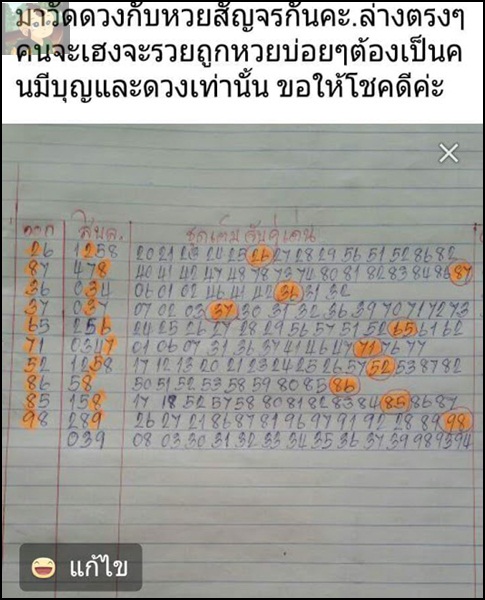 มาวัดดวงกับหวยสัญจรกันคะ.ล่างตรงๆ
คนจะเฮงจะรวยถูกหวยบ่อยๆต้องเป็นค
นมีบุญและดวงเท่านั้น ขอให้โชคดีค่ะ
ออก
26 1258 20 21 23 24 25 26 27 28 29 56 51 52 86 82
87 478 40 41 42 47 48 78 73 74 80 81 82 83 84 86 87
36 034 06 01 02 46 41 42 36 31 32
37 037 07 02 03 37 30 31 32 36 39 70 71 72 73
65 256 24 25 26 27 28 29 56 57 51 52 65 61 62
71 0347 01 06 07 31 36 37 41 46 47 71 76 77
52 1258 17 12 13 20 21 23 24 25 26 57 52 53 87 82
86 58 50 51 52 53 58 59 80 85 86
85 158 17 18 52 57 58 80 81 82 83 84 85 86 87
98 289 26 27 21 86 87 81 96 97 91 92 28 89 98
039 08 03 30 31 32 33 34 35 36 37 39 98 93 94
แก้ไข